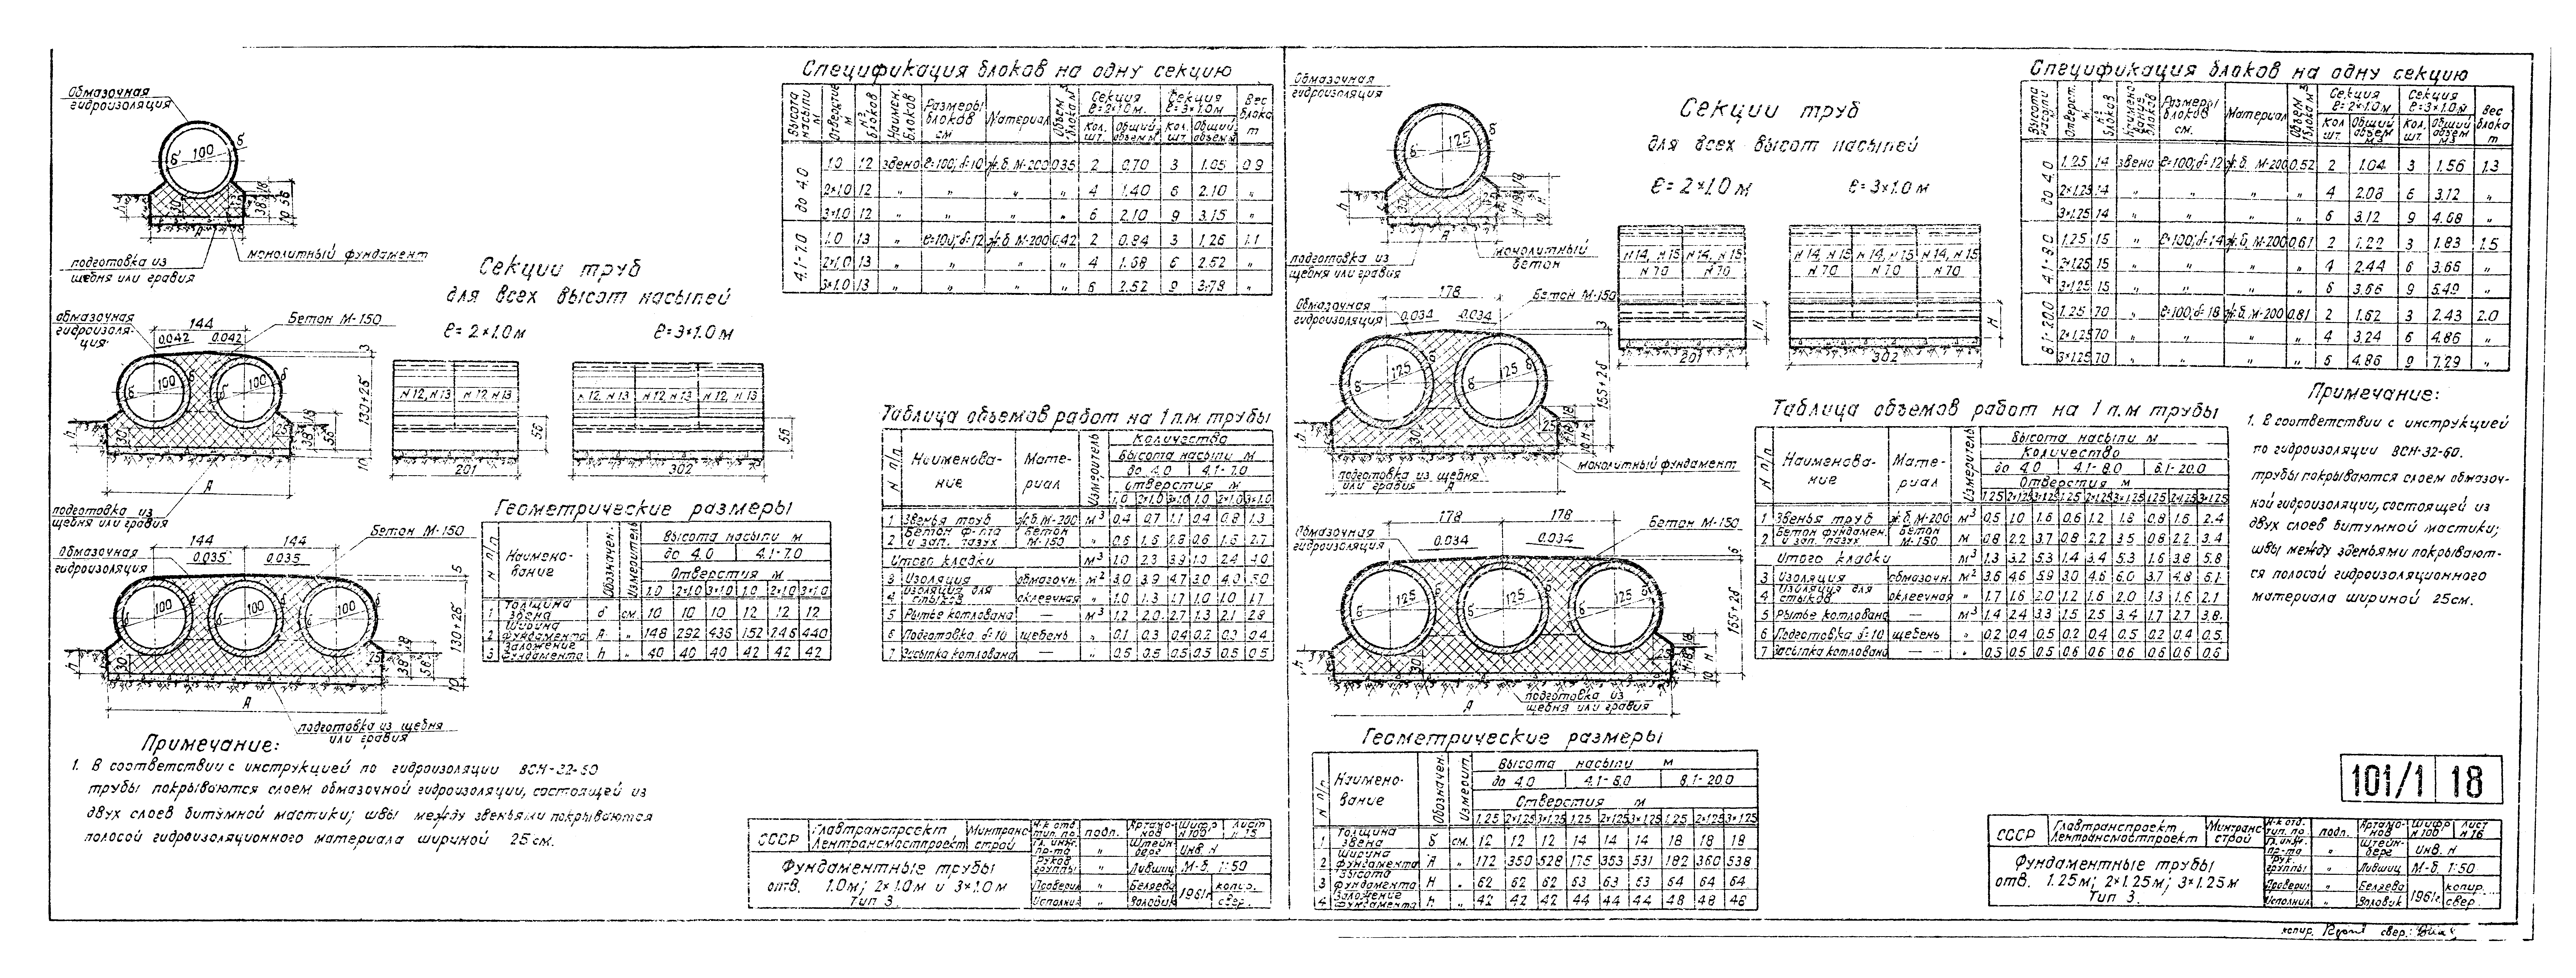 Обмазочная
гидроизоляция
100
подготовка из
щебня или гравия
монолитный фундамент
Секции труб
для всех высот насыпей
ℓ=2×1.0м ℓ=3×1.0м
обмазочная
гидроизоля-
ция
144
Бетон М-150
0.042 0.042
100 100
130+2δ
N12, N13 N12, N13
N12, N13 N12, N13 N12, N13
201
302
56
А
подготовка из
щебня или гравия
Бетон М-150
144 144
Обмазочная
гидроизоляция
0.035 0.035
100 100 100
130+2δ
А
подготовка из щебня
или гравия
Примечание:
1. В соответствии с инструкцией по гидроизоляции ВСН-32-60
трубы покрываются слоем обмазочной гидроизоляции, состоящей из
двух слоев битумной мастики; швы между звеньями покрываются
полосой гидроизоляционного материала шириной 25см.
Спецификация блоков на одну секцию
Высота насыпи м Отверстие м №№ блоков Наимен. блоков Размеры блоков см Материал Объем блока м³ Секция ℓ=2×1.0м. Секция ℓ=3×1.0м Вес блока т
Кол. шт. Общий объем м³ Кол. шт. Общий объем м³
до 4.0 1.0 12 звено ℓ=100; δ=10 ж.б. М-200 0.35 2 0.70 3 1.05 0.9
2×1.0 12 " " " " 4 1.40 6 2.10 "
3×1.0 12 " " " " 6 2.10 9 3.15 "
4.1-7.0 1.0 13 " ℓ=100; δ=12 ж.б. М-200 0.42 2 0.84 3 1.26 1.1
2×1.0 13 " " " " 4 1.68 6 2.52 "
3×1.0 13 " " " " 6 2.52 9 3.78 "
Геометрические размеры
N п/п Наимено-вание Обозначен. Измеритель Высота насыпи м
до 4.0 4.1-7.0
Отверстия м
1.0 2×1.0 3×1.0 1.0 2×1.0 3×1.0
1 Толщина звена δ см. 10 10 10 12 12 12
2 Ширина фундамента А " 148 292 436 152 246 440
3 Заложение фундамента h " 40 40 40 42 42 42
Таблица объемов работ на 1 п.м. трубы
N п/п Наименова-ние Мате-риал Измеритель Количество
Высота насыпи м
до 4.0 4.1-7.0
Отверстия м
1.0 2×1.0 3×1.0 1.0 2×1.0 3×1.0
1 Звенья труб ж.б. М-200 м³ 0.4 0.7 1.1 0.4 0.8 1.3
2 Бетон ф-та и зап. пазух Бетон М-150 " 0.6 1.6 2.8 0.6 1.6 2.7
Итого кладки м³ 1.0 2.3 3.9 1.0 2.4 4.0
3 Изоляция обмазочн. м² 3.0 3.9 4.7 3.0 4.0 5.0
4 Изоляция для стыков оклеечная " 1.0 1.3 1.7 1.0 1.0 1.7
5 Рытье котлована — м³ 1.2 2.0 2.7 1.3 2.1 2.8
6 Подготовка δ=10 щебень " 0.1 0.3 0.4 0.2 0.3 0.4
7 Засыпка котлована — " 0.5 0.5 0.5 0.5 0.5 0.5
СССР Главтранспроект Лентрансмостпроект Минтрансстрой
Фундаментные трубы
отв. 1.0м; 2×1.0м и 3×1.0м
Тип 3.
Н-к отд. тип. пр. подп. Артамонов Шифр N 100 Лист N 15
Гл. инж. пр-та " Штейнберг Инв. N
Руков. группы " Лившиц М-б. 1:50
Проверил " Беляева 1961г. копир.
Исполнил " Воловик свер.
Обмазочная
гидроизоляция
125
подготовка из
щебня или гравия
монолитный
бетон
Секции труб
для всех высот насыпей
ℓ=2×1.0м ℓ=3×1.0м
N14, N15 N14, N15
N70 N70
N14, N15 N14, N15 N14, N15
N70 N70 N70
201
302
Н
Обмазочная
гидроизоляция
178
Бетон М-150
0.034 0.034
125 125
155+2δ
монолитный фундамент
подготовка из щебня
или гравия
А
178 178
Обмазочная
гидроизоляция
0.034 0.034
Бетон М-150
125 125 125
155+2δ
А
подготовка из
щебня или гравия
Спецификация блоков на одну секцию
Высота насыпи м Отверст. м №№ блоков Наименование блоков Размеры блоков см. Материал Объем блока м³ Секция ℓ=2×1.0м Секция ℓ=3×1.0м Вес блока т
Кол. шт. Общий объем м3 Кол. шт. Общий объем м3
до 4.0 1.25 14 звено ℓ=100; δ=12 ж.б. М-200 0.52 2 1.04 3 1.56 1.3
2×1.25 14 " " " " 4 2.08 6 3.12 "
3×1.25 14 " " " " 6 3.12 9 4.68 "
4.1-8.0 1.25 15 " ℓ=100; δ=14 ж.б. М-200 0.61 2 1.22 3 1.83 1.5
2×1.25 15 " " " " 4 2.44 6 3.66 "
3×1.25 15 " " " " 6 3.66 9 5.49 "
8.1-20.0 1.25 70 " ℓ=100; δ=18 ж.б. М-200 0.81 2 1.62 3 2.43 2.0
2×1.25 70 " " " " 4 3.24 6 4.86 "
3×1.25 70 " " " " 6 4.86 9 7.29 "
Таблица объемов работ на 1 п.м трубы
N п/п Наименова-ние Мате-риал Измеритель Высота насыпи м
Количество
до 4.0 4.1-8.0 8.1-20.0
Отверстия м
1.25 2×1.25 3×1.25 1.25 2×1.25 3×1.25 1.25 2×1.25 3×1.25
1 Звенья труб ж.б. М-200 м³ 0.5 1.0 1.6 0.6 1.2 1.8 0.8 1.6 2.4
2 Бетон фундамен. и зап. пазух Бетон М-150 м 0.8 2.2 3.7 0.8 2.2 3.5 0.8 2.2 3.4
Итого кладки м³ 1.3 3.2 5.3 1.4 3.4 5.3 1.6 3.8 5.8
3 Изоляция обмазочн. м² 3.6 4.6 5.9 3.0 4.6 6.0 3.7 4.8 6.1
4 Изоляция для стыков оклеечная " 1.7 1.6 2.0 1.2 1.6 2.0 1.3 1.6 2.1
5 Рытье котлована — м³ 1.4 2.4 3.3 1.5 2.5 3.4 1.7 2.7 3.8
6 Подготовка δ=10 щебень " 0.2 0.4 0.5 0.2 0.4 0.5 0.2 0.4 0.5
7 Засыпка котлована — " 0.5 0.5 0.5 0.6 0.6 0.6 0.6 0.6 0.6
Примечание:
1. В соответствии с инструкцией
по гидроизоляции ВСН-32-60.
трубы покрываются слоем обмазоч-
ной гидроизоляции, состоящей из
двух слоев битумной мастики;
швы между звеньями покрывают-
ся полосой гидроизоляционного
материала шириной 25см.
Геометрические размеры
N п/п Наимено-вание Обозначен. Измерит. Высота насыпи м
до 4.0 4.1-8.0 8.1-20.0
Отверстия м
1.25 2×1.25 3×1.25 1.25 2×1.25 3×1.25 1.25 2×1.25 3×1.25
1 Толщина звена δ см. 12 12 12 14 14 14 18 18 18
2 Ширина фундамента А " 172 350 528 175 353 531 182 360 538
3 Высота фундамента Н " 62 62 62 63 63 63 64 64 64
4 Заложение фундамента h " 42 42 42 44 44 44 48 48 48
101/1 18
СССР Главтранспроект Лентрансмостпроект Минтрансстрой
Фундаментные трубы
отв. 1.25м; 2×1.25м; 3×1.25м
Тип 3.
Н-к отд. тип. пр. подп. Артамонов Шифр N 100 Лист N 16
Гл. инж. пр-та " Штейнберг Инв. N
Рук. группы " Лившиц М-б. 1:50
Проверил " Беляева 1961г. копир.
Исполнил " Воловик свер.
копир. свер.: